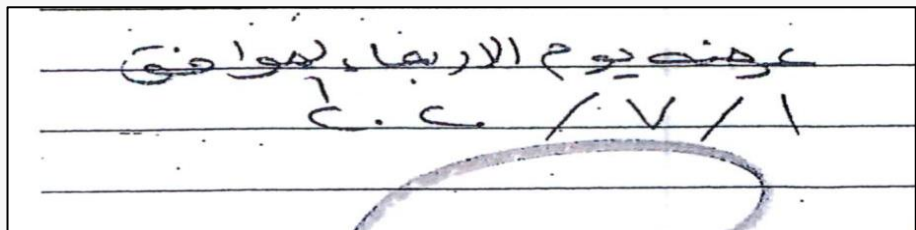 عرضه يوم الاربعاء لموافق
١ / ٧ / ٢٠٢٠م